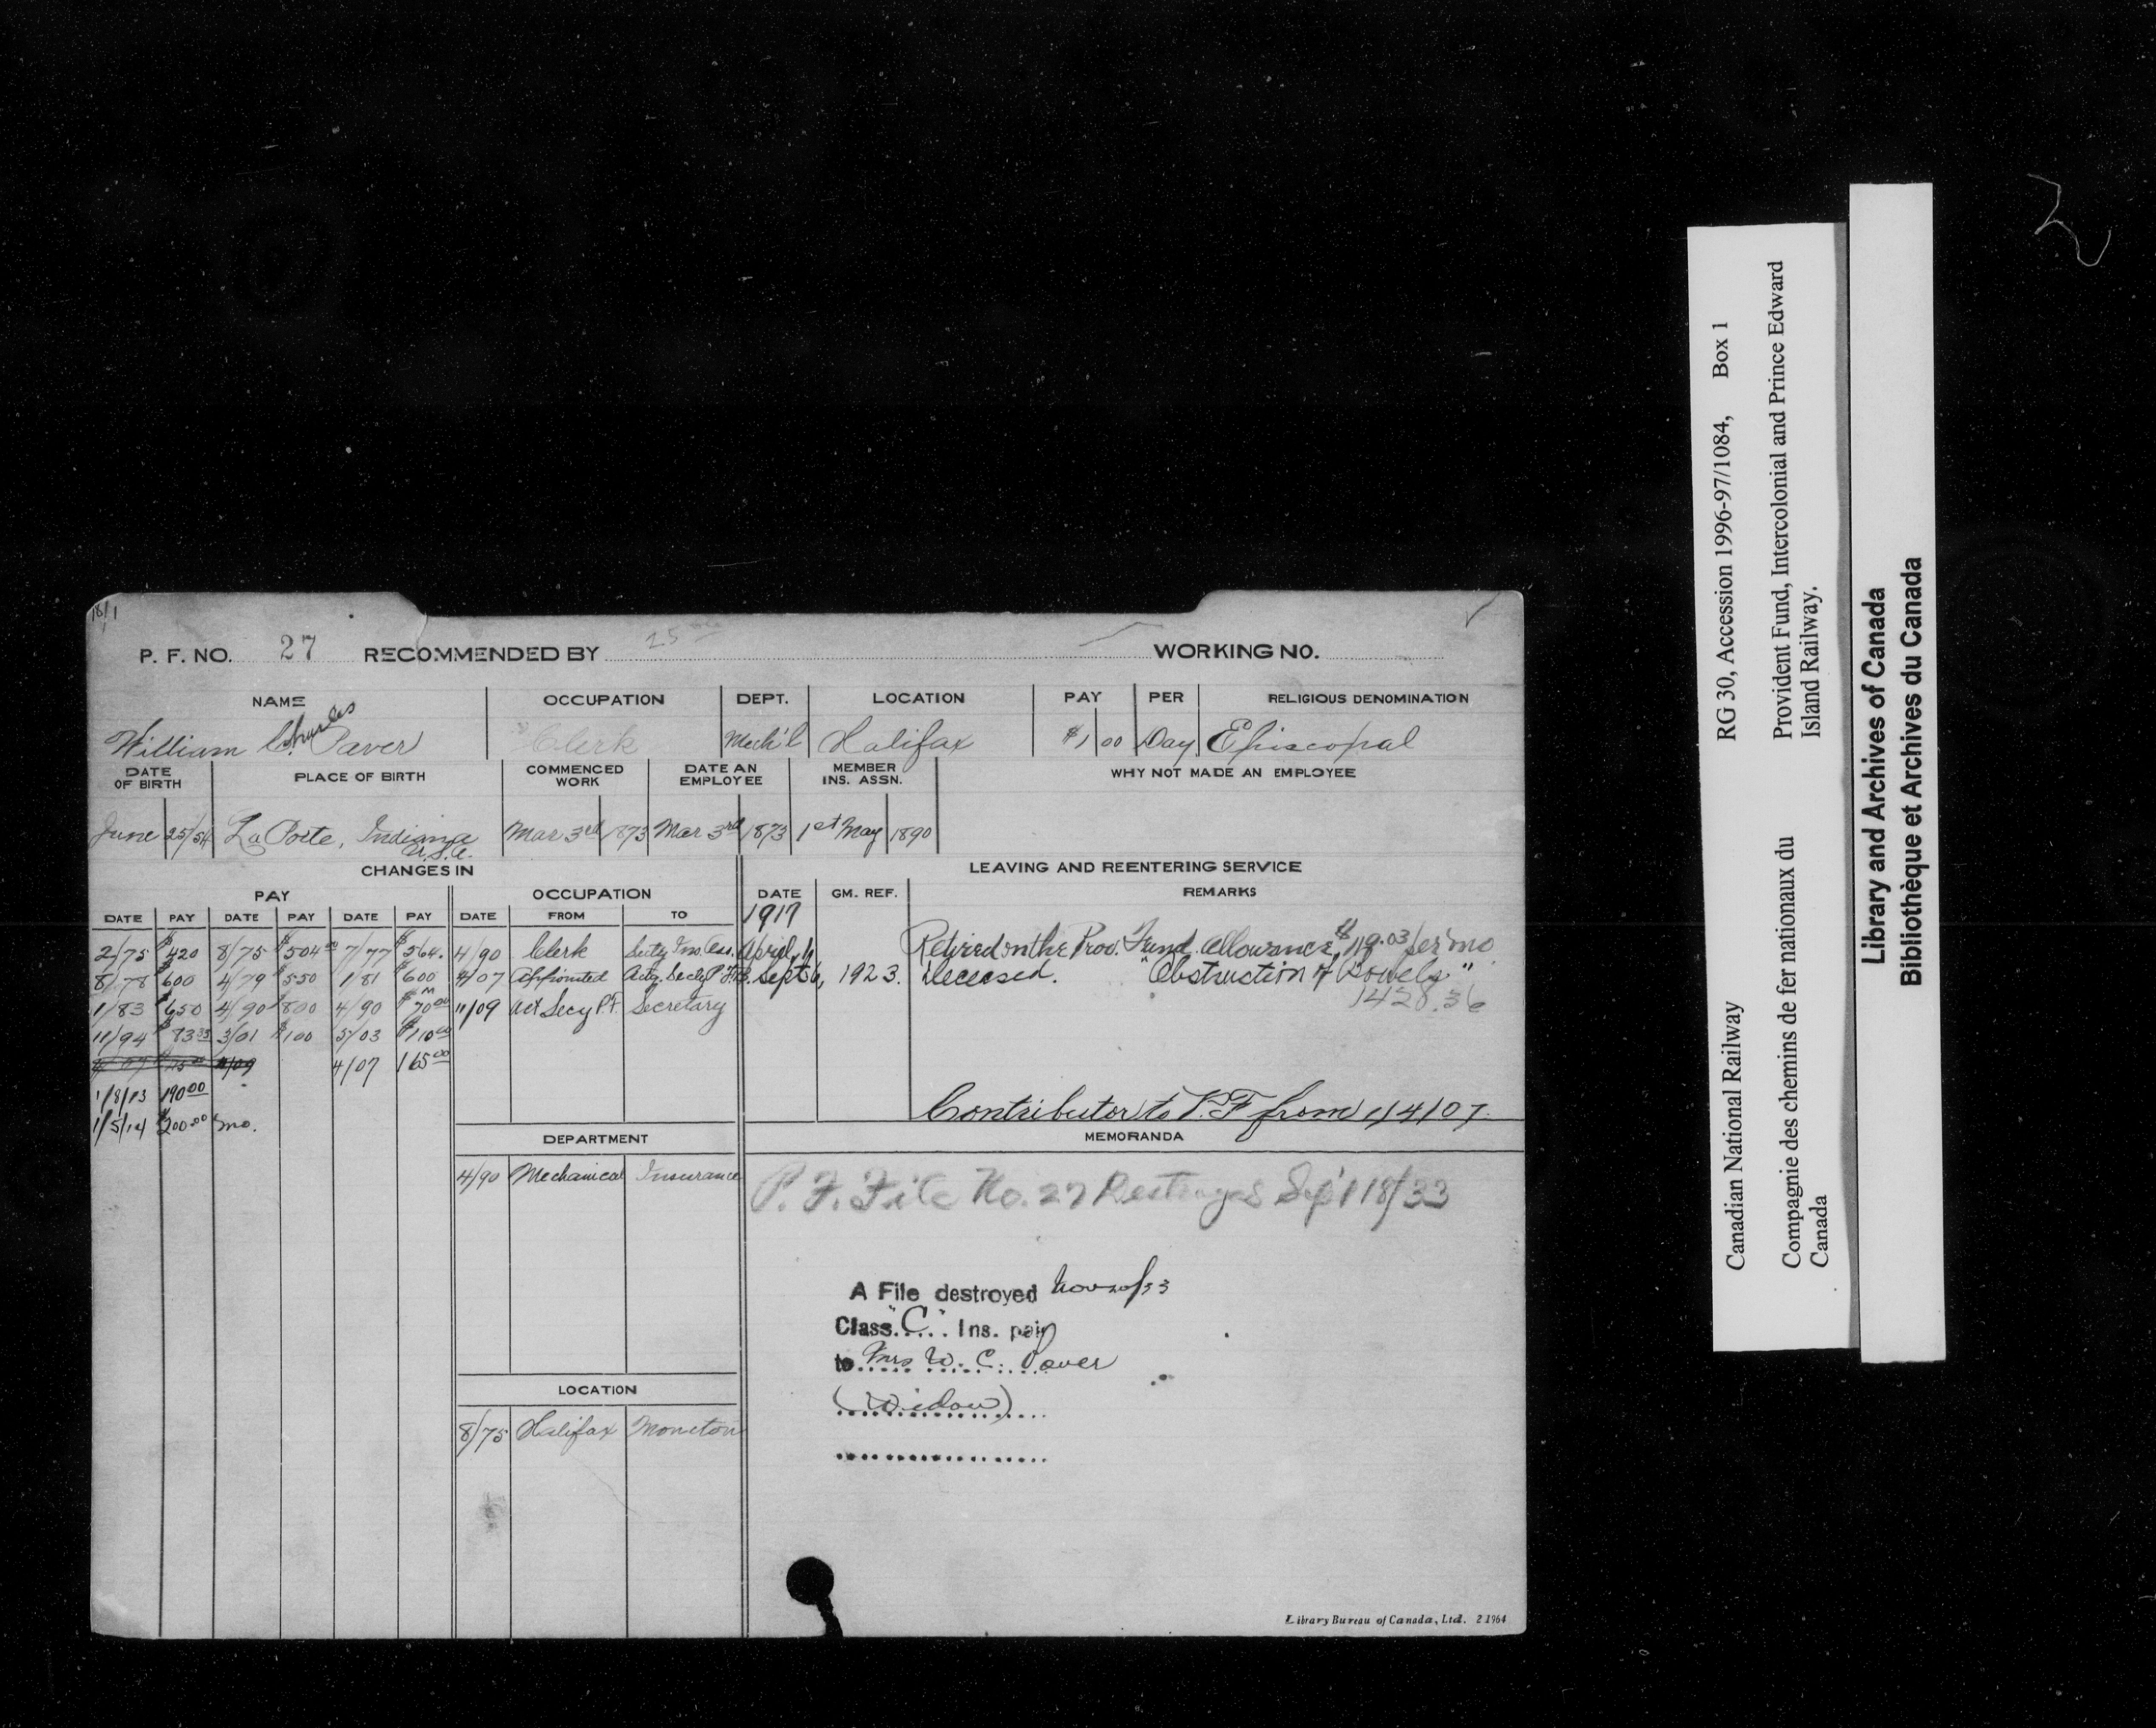 18/1
P. F. NO. 27 RECOMMENDED BY WORKING NO.
NAME OCCUPATION DEPT. LOCATION PAY PER RELIGIOUS DENOMINATION
William Charles Paver Clerk Mech'l Halifax $1 00 Day Episcopal
DATE OF BIRTH PLACE OF BIRTH COMMENCED WORK DATE AN EMPLOYEE MEMBER INS. ASSN. WHY NOT MADE AN EMPLOYEE
June 25/54 La Porte, Indiana U.S.A. Mar 3rd 1873 Mar 3rd 1873 1st May 1890
CHANGES IN LEAVING AND REENTERING SERVICE
PAY OCCUPATION DATE GM. REF. REMARKS
DATE PAY DATE PAY DATE PAY DATE FROM TO 1917
2/75 $420 8/75 $504.00 7/77 $564. 4/90 Clerk Secty Ins. Ass. April, Retired on the Prov. Fund. Allowance, $119.03 per mo
8/78 $600 4/79 $550 1/81 $600 4/07 Appointed Actg. Secty P.F.B. Sept 6, 1923. Deceased. "Obstruction of Bowels"
1/83 $650 4/90 $800 4/90 $70.00 11/09 Act Secy P.F. Secretary 1428.36
11/94 $83.33 3/01 $100 5/03 $110.00
4/07 165.00
1/8/13 190.00
1/5/14 $200.00 mo.
Contributor to P.F from 1/4/07.
DEPARTMENT MEMORANDA
4/90 Mechanical Insurance
P. F. File No. 27 Destroyed Sept 18/33
A File destroyed Nov 20/33
Class "C" Ins. paid
to Mrs W. C. Paver
(Widow)
LOCATION
8/75 Halifax Moncton
Library Bureau of Canada, Ltd. 21964
Canadian National Railway RG 30, Accession 1996-97/1084, Box 1
Compagnie des chemins de fer nationaux du Canada
Provident Fund, Intercolonial and Prince Edward Island Railway.
Library and Archives of Canada
Bibliothèque et Archives du Canada